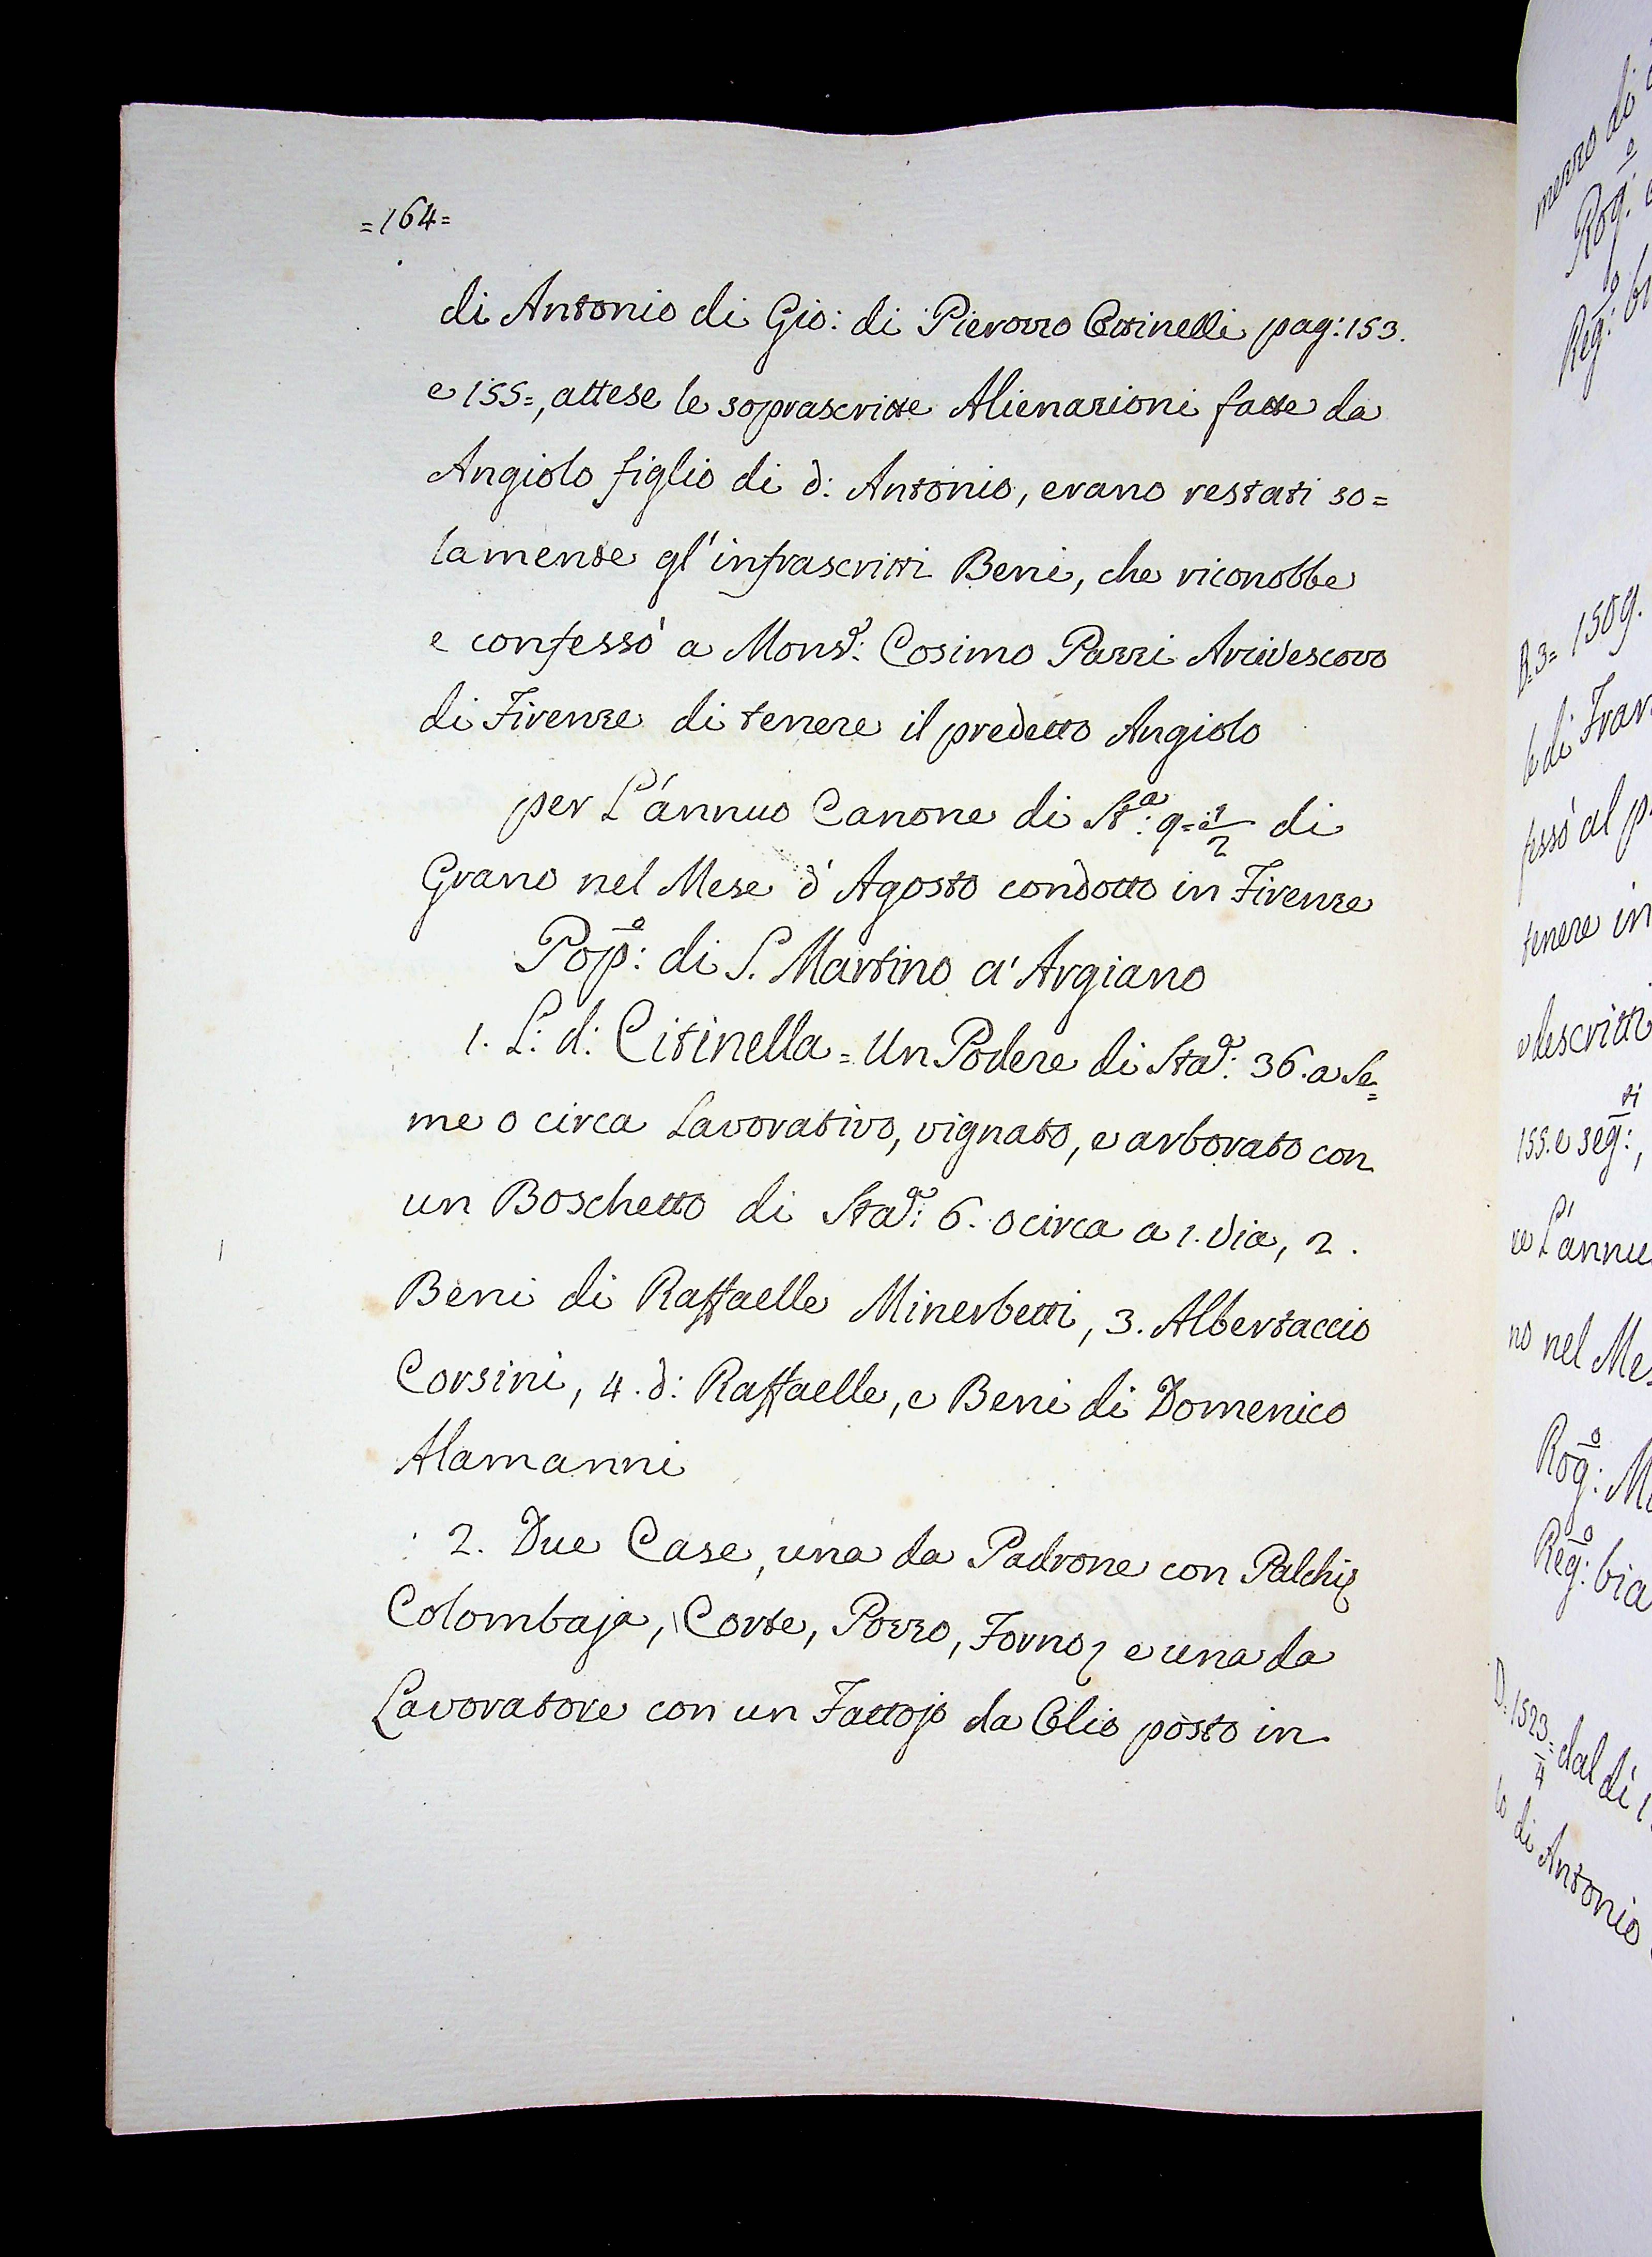 =164=
di Antonio di Gio: di Pierozzo Citinelli pag: 153.
e 155=, attese le soprascritte Alienazioni fatte da
Angiolo figlio di d: Antonio, erano restati so=
lamente gl'infrascritti Beni, che riconobbe
e confessò a Monsr: Cosimo Pazzi Arcivescovo
di Firenze di tenere il predetto Angiolo
per L'annuo Canone di Sta: 9=1/2 di
Grano nel Mese d'Agosto condotto in Firenze
Popo: di S. Martino a' Argiano
1. L: d: Citinella = Un Podere di Stara: 36. a Se=
me o circa Lavorativo, vignato, e arborato con
un Boschetto di Stara: 6. o circa a 1. via, 2.
Beni di Raffaelle Minerbetti, 3. Albertaccio
Corsini, 4. d: Raffaelle, e Beni di Domenico
Alamanni
2. Due Case, una da Padrone con Palchi,
Colombaja, Corte, Pozzo, Forno, e una da
Lavoratore con un Fattojo da Olio posto in
mezzo di
Rogo:
Rego: bi
D. 3= 1509.
le di Fran
fessò al p
tenere in
e descritti
155. e segti:,
re L'annu
no nel Me
Rogo: M
Rego: bia
D. 1523/4= dal dì 1
lo di Antonio